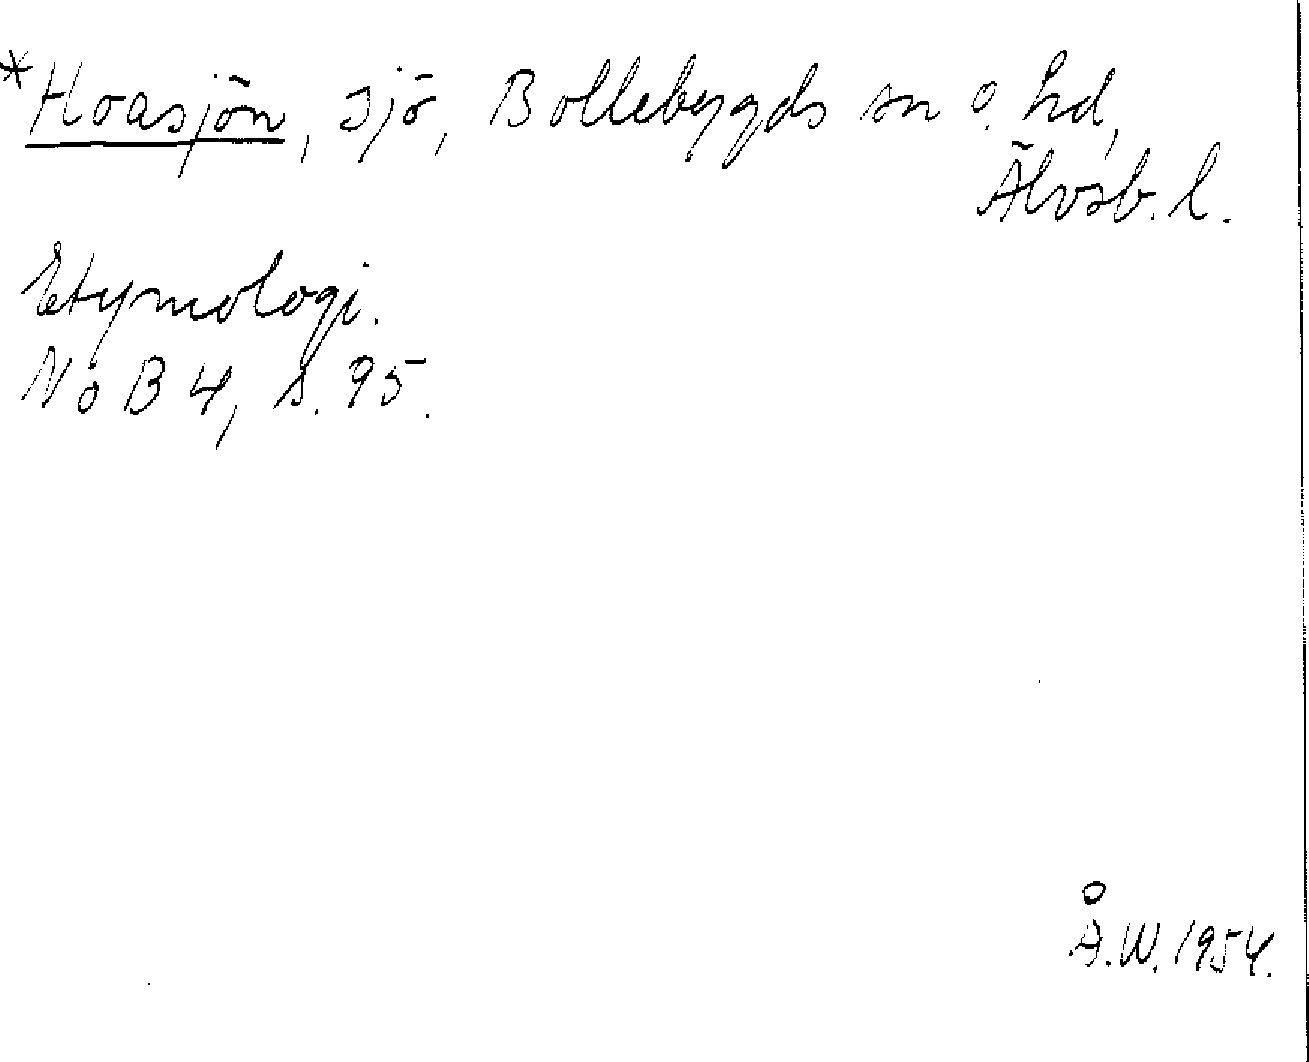 *Hoasjön, sjö, Bollebygds sn o. hd,
Älvsb. l.
Etymologi.
NoB 4, s. 95.
Å.W. 1954.